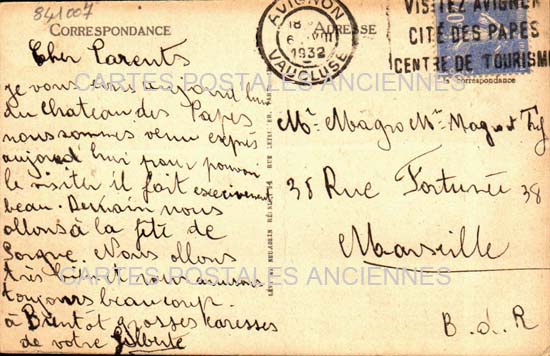 841007
CORRESPONDANCE
ADRESSE
AVIGNON
18
6
1932
VAUCLUSE
VISITEZ AVIGNON
CITÉ DES PAPES
CENTRE DE TOURISME
la Correspondance
CARTES POSTALES ANCIENNES
Cher Parents
je vous
du chateau des Papes
nous sommes venu exprés
aujourd hui pour pouvoir
le visiter il fait
beau. Demain nous
allons à la fête de
Sorgue. Nous allons
très bien et nous amusons
toujours beaucoup.
à Bientot grosses Caresses
de votre Gilberte
Mr Magro Mr Magro et
38 Rue Fortunée 38
Marseille
B. d. R
CARTES POSTALES ANCIENNES